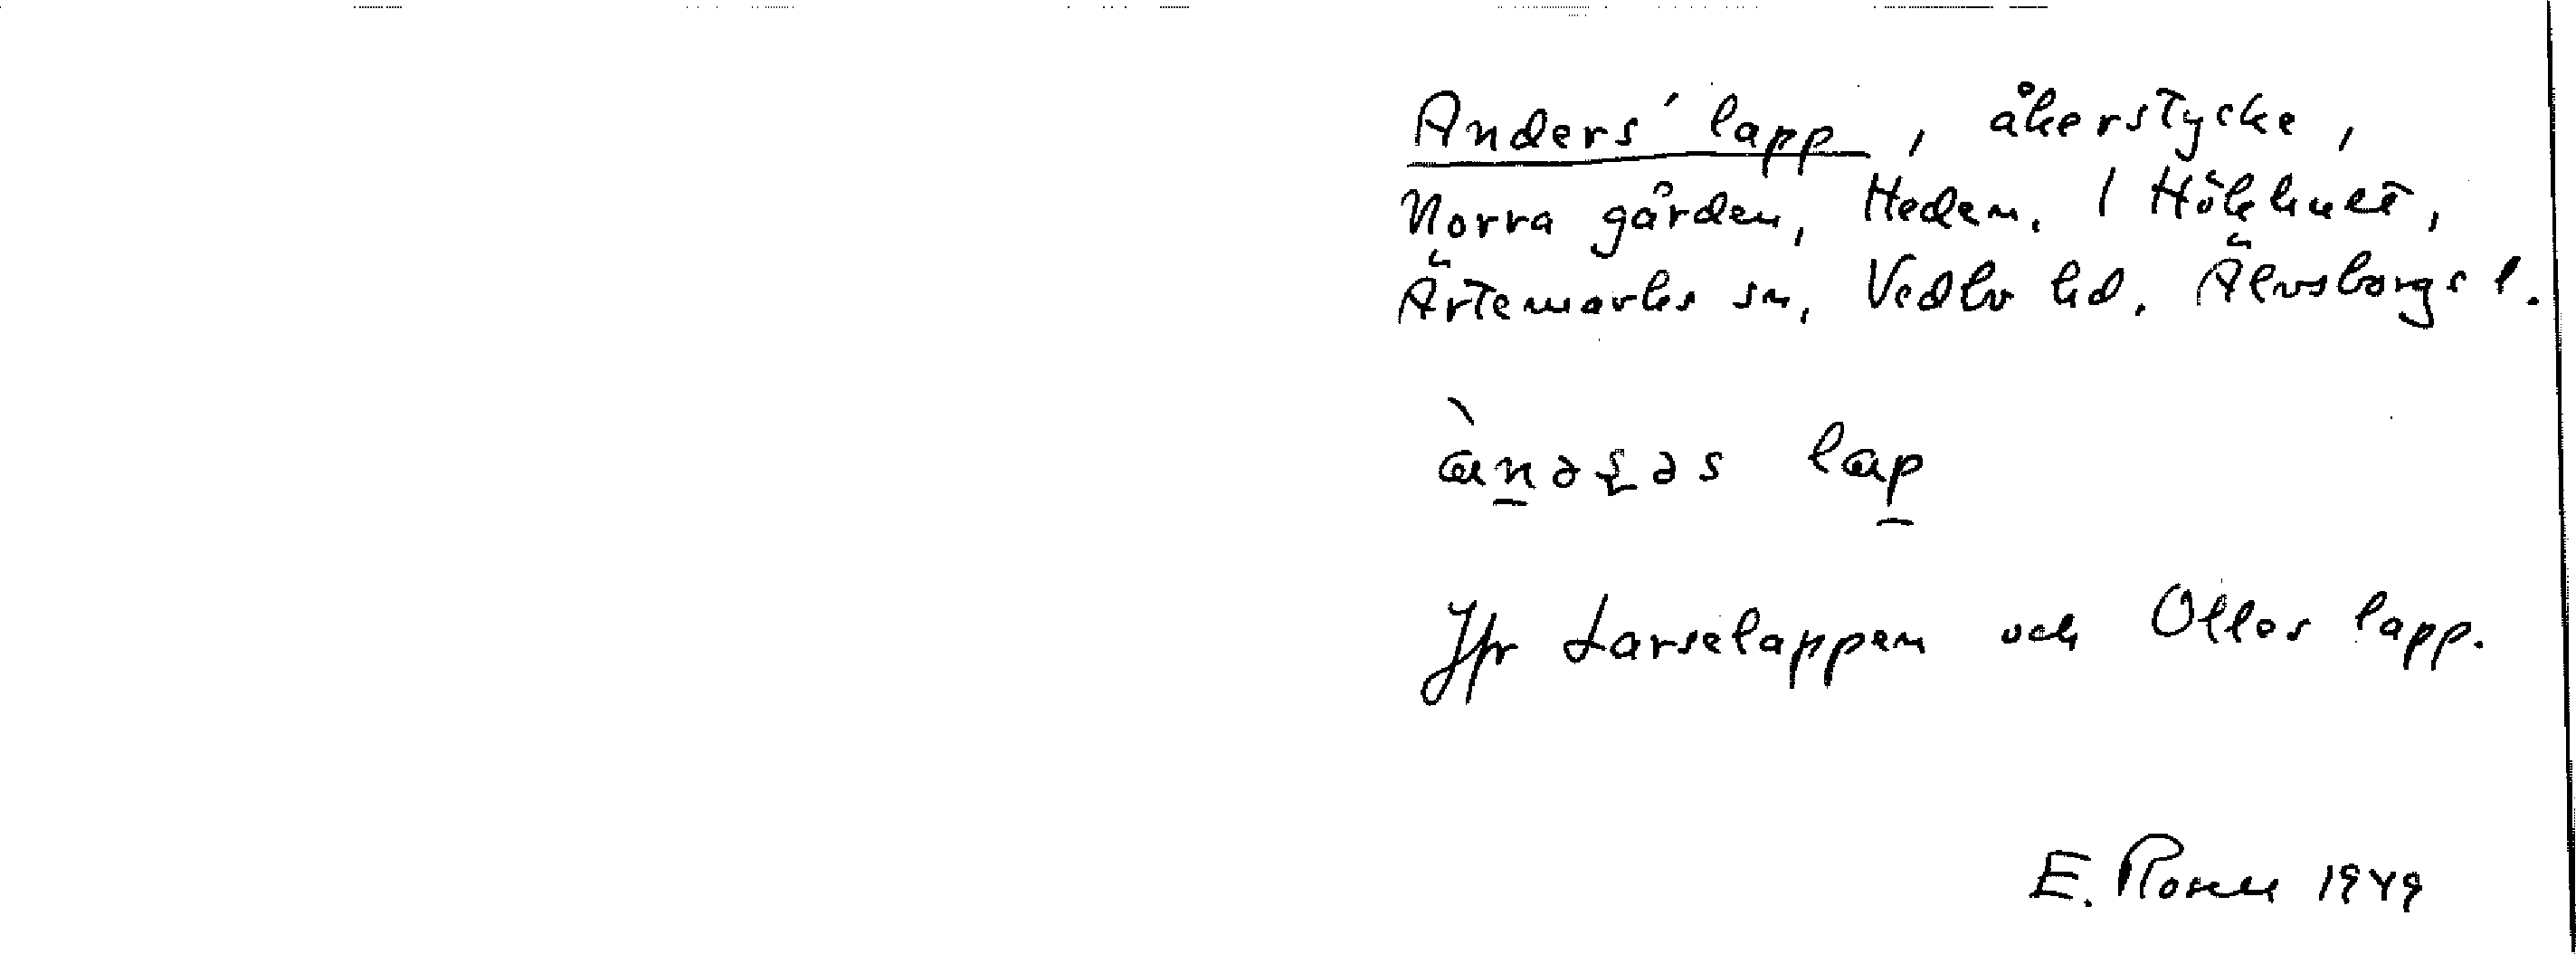 Anders' lapp, åkerstycke,
Norra gården, Heden, 1 Hökhult,
Ärtemarks sn, Vedbo hd, Älvsborgs l.
Jfr Larselappen och Olles lapp.
E. Rosell 1949